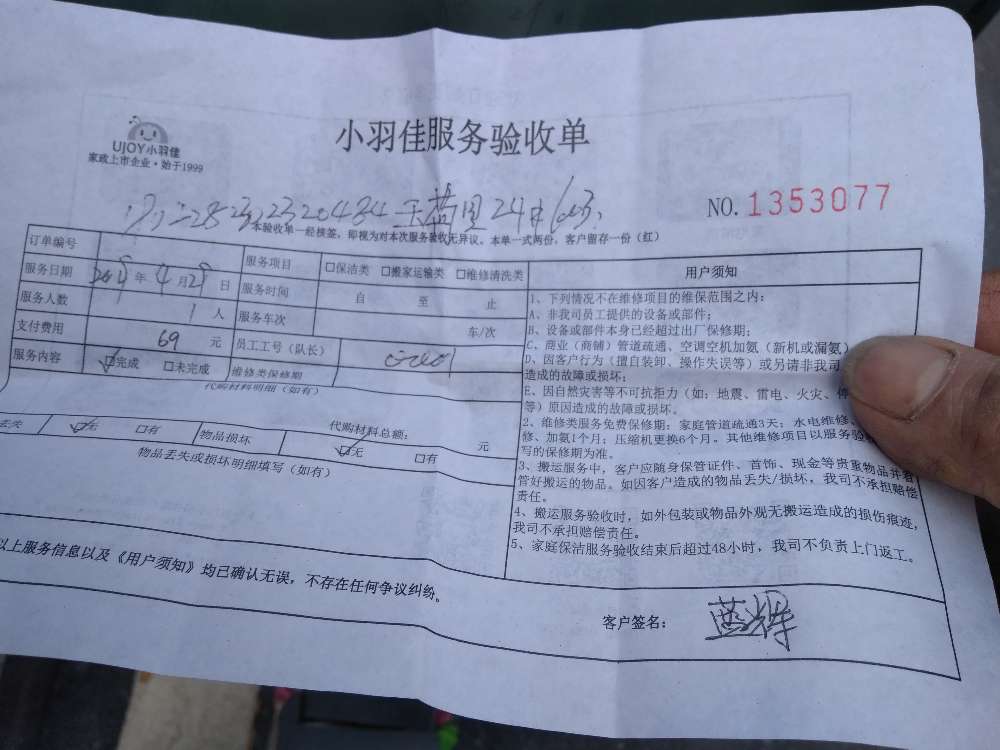 UJOY小羽佳
家政上市企业·始于1999
小羽佳服务验收单
NO.1353077
24 603
本验收单一经核签，即视为对本次服务验收无异议。本单一式两份，客户留存一份（红）
订单编号
服务项目 □保洁类 □搬家运输类 □维修清洗类
服务日期 年 4 月 29 日
服务时间 自 至 止
服务人数 1 人
服务车次 车/次
支付费用 69 元
员工工号（队长）
服务内容 □完成 □未完成
维修类保修期
代购材料明细（如有）
代购材料总额： 元
丢失 □无 □有 物品损坏 □无 □有
物品丢失或损坏明细填写（如有）
用户须知
1、下列情况不在维修项目的维保范围之内：
A、非我司员工提供的设备或部件；
B、设备或部件本身已经超过出厂保修期；
C、商业（商铺）管道疏通、空调空机加氨（新机或漏氨）
D、因客户行为（擅自装卸、操作失误等）或另请非我司
造成的故障或损坏；
E、因自然灾害等不可抗拒力（如：地震、雷电、火灾、
等）原因造成的故障或损坏。
2、维修类服务免费保修期：家庭管道疏通3天；水电维修、
修、加氨1个月；压缩机更换6个月。其他维修项目以服务验收
写的保修期为准。
3、搬运服务中，客户应随身保管证件、首饰、现金等贵重物品并看
管好搬运的物品。如因客户造成的物品丢失/损坏，我司不承担赔偿
责任。
4、搬运服务验收时，如外包装或物品外观无搬运造成的损伤痕迹，
我司不承担赔偿责任。
5、家庭保洁服务验收结束后超过48小时，我司不负责上门返工。
以上服务信息以及《用户须知》均已确认无误，不存在任何争议纠纷。
客户签名： 蓝辉